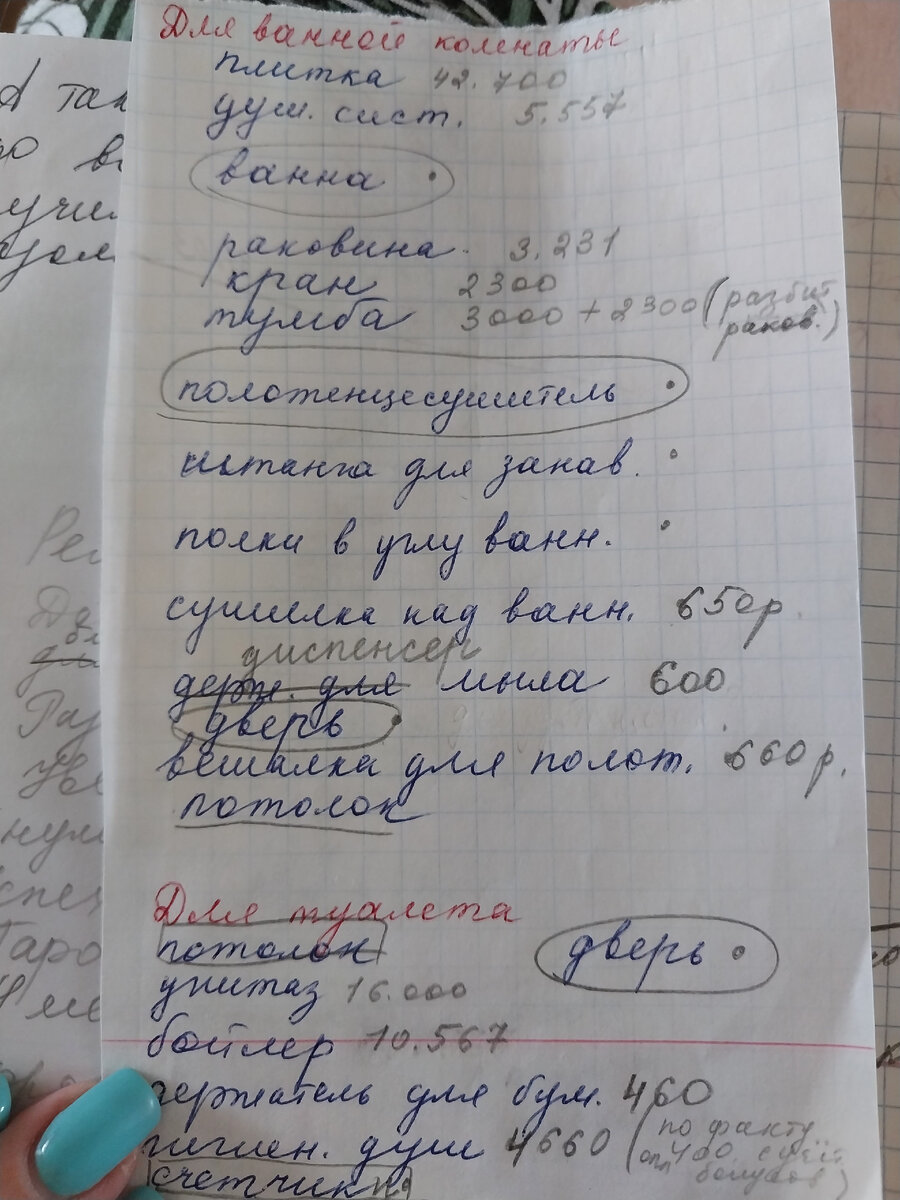 Для ванной комнаты
плитка 42.700
душ. сист. 5.557
ванна
раковина 3.231
кран 2300
тумба 3000 + 2300 (разбит
раков.)
полотенцесушитель
штанга для занав.
полки в углу ванн.
сушилка над ванн. 650р.
диспенсер
держ. для мыла 600
дверь
вешалка для полот. 660р.
потолок
Для туалета
потолок
дверь
унитаз 16.000
бойлер 10.567
держатель для бум. 460
гигиен. душ 4660 (по факту
опл 400
бонусов)
счетчики
А так